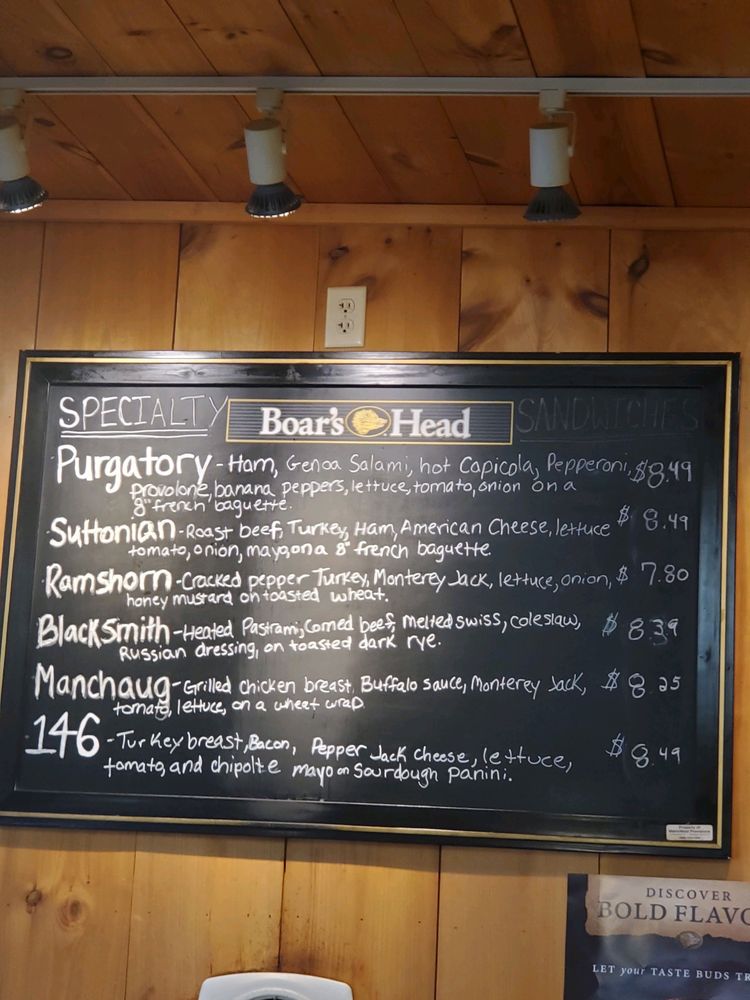 SPECIALTY Boar's Head SANDWICHES
Purgatory - Ham, Genoa Salami, hot Capicola, Pepperoni, $8.49
provolone, banana peppers, lettuce, tomato, onion on a
8" french baguette.
Suttonian - Roast beef, Turkey, Ham, American Cheese, lettuce $ 8.49
tomato, onion, mayo, on a 8" french baguette
Ramshorn - Cracked pepper Turkey, Monterey Jack, lettuce, onion, $ 7.80
honey mustard on toasted wheat.
BlackSmith - Heated Pastrami, Corned beef, melted swiss, coleslaw, $ 8.39
Russian dressing, on toasted dark rye.
Manchaug - Grilled chicken breast, Buffalo sauce, Monterey Jack, $ 8.25
tomato, lettuce, on a wheat wrap
146 - Turkey breast, Bacon, Pepper Jack Cheese, lettuce, $ 8.49
tomato, and chipolte mayo on Sourdough Panini.
Property of
DISCOVER
BOLD FLAVO
LET your TASTE BUDS TR